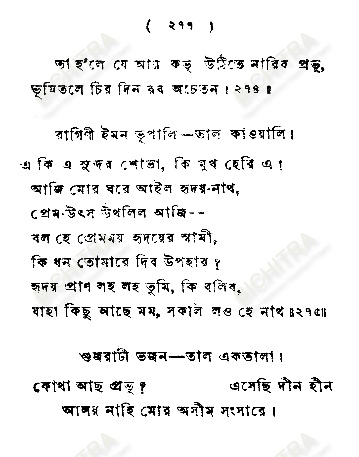 ( ২৭৭ )
তা হ'লে যে আর কভু উঠিতে নারিব প্রভু,
ভূমিতলে চির দিন রব অচেতন । ২৭৪ ॥
রাগিণী ইমন ভূপালি—তাল কাওয়ালি ।
এ কি এ সুন্দর শোভা, কি মুখ হেরি এ !
আজি মোর ঘরে আইল হৃদয়-নাথ,
প্রেম-উৎস উথলিল আজি--
বল হে প্রেমময় হৃদয়ের স্বামী,
কি ধন তোমারে দিব উপহার ?
হৃদয় প্রাণ লহ লহ তুমি, কি বলিব,
যাহা কিছু আছে মম, সকলি লও হে নাথ ॥২৭৫॥
গুজরাটী ভজন—তাল একতালা ।
কোথা আছ প্রভু ? এসেছি দীন হীন
আলয় নাহি মোর অসীম সংসারে ।